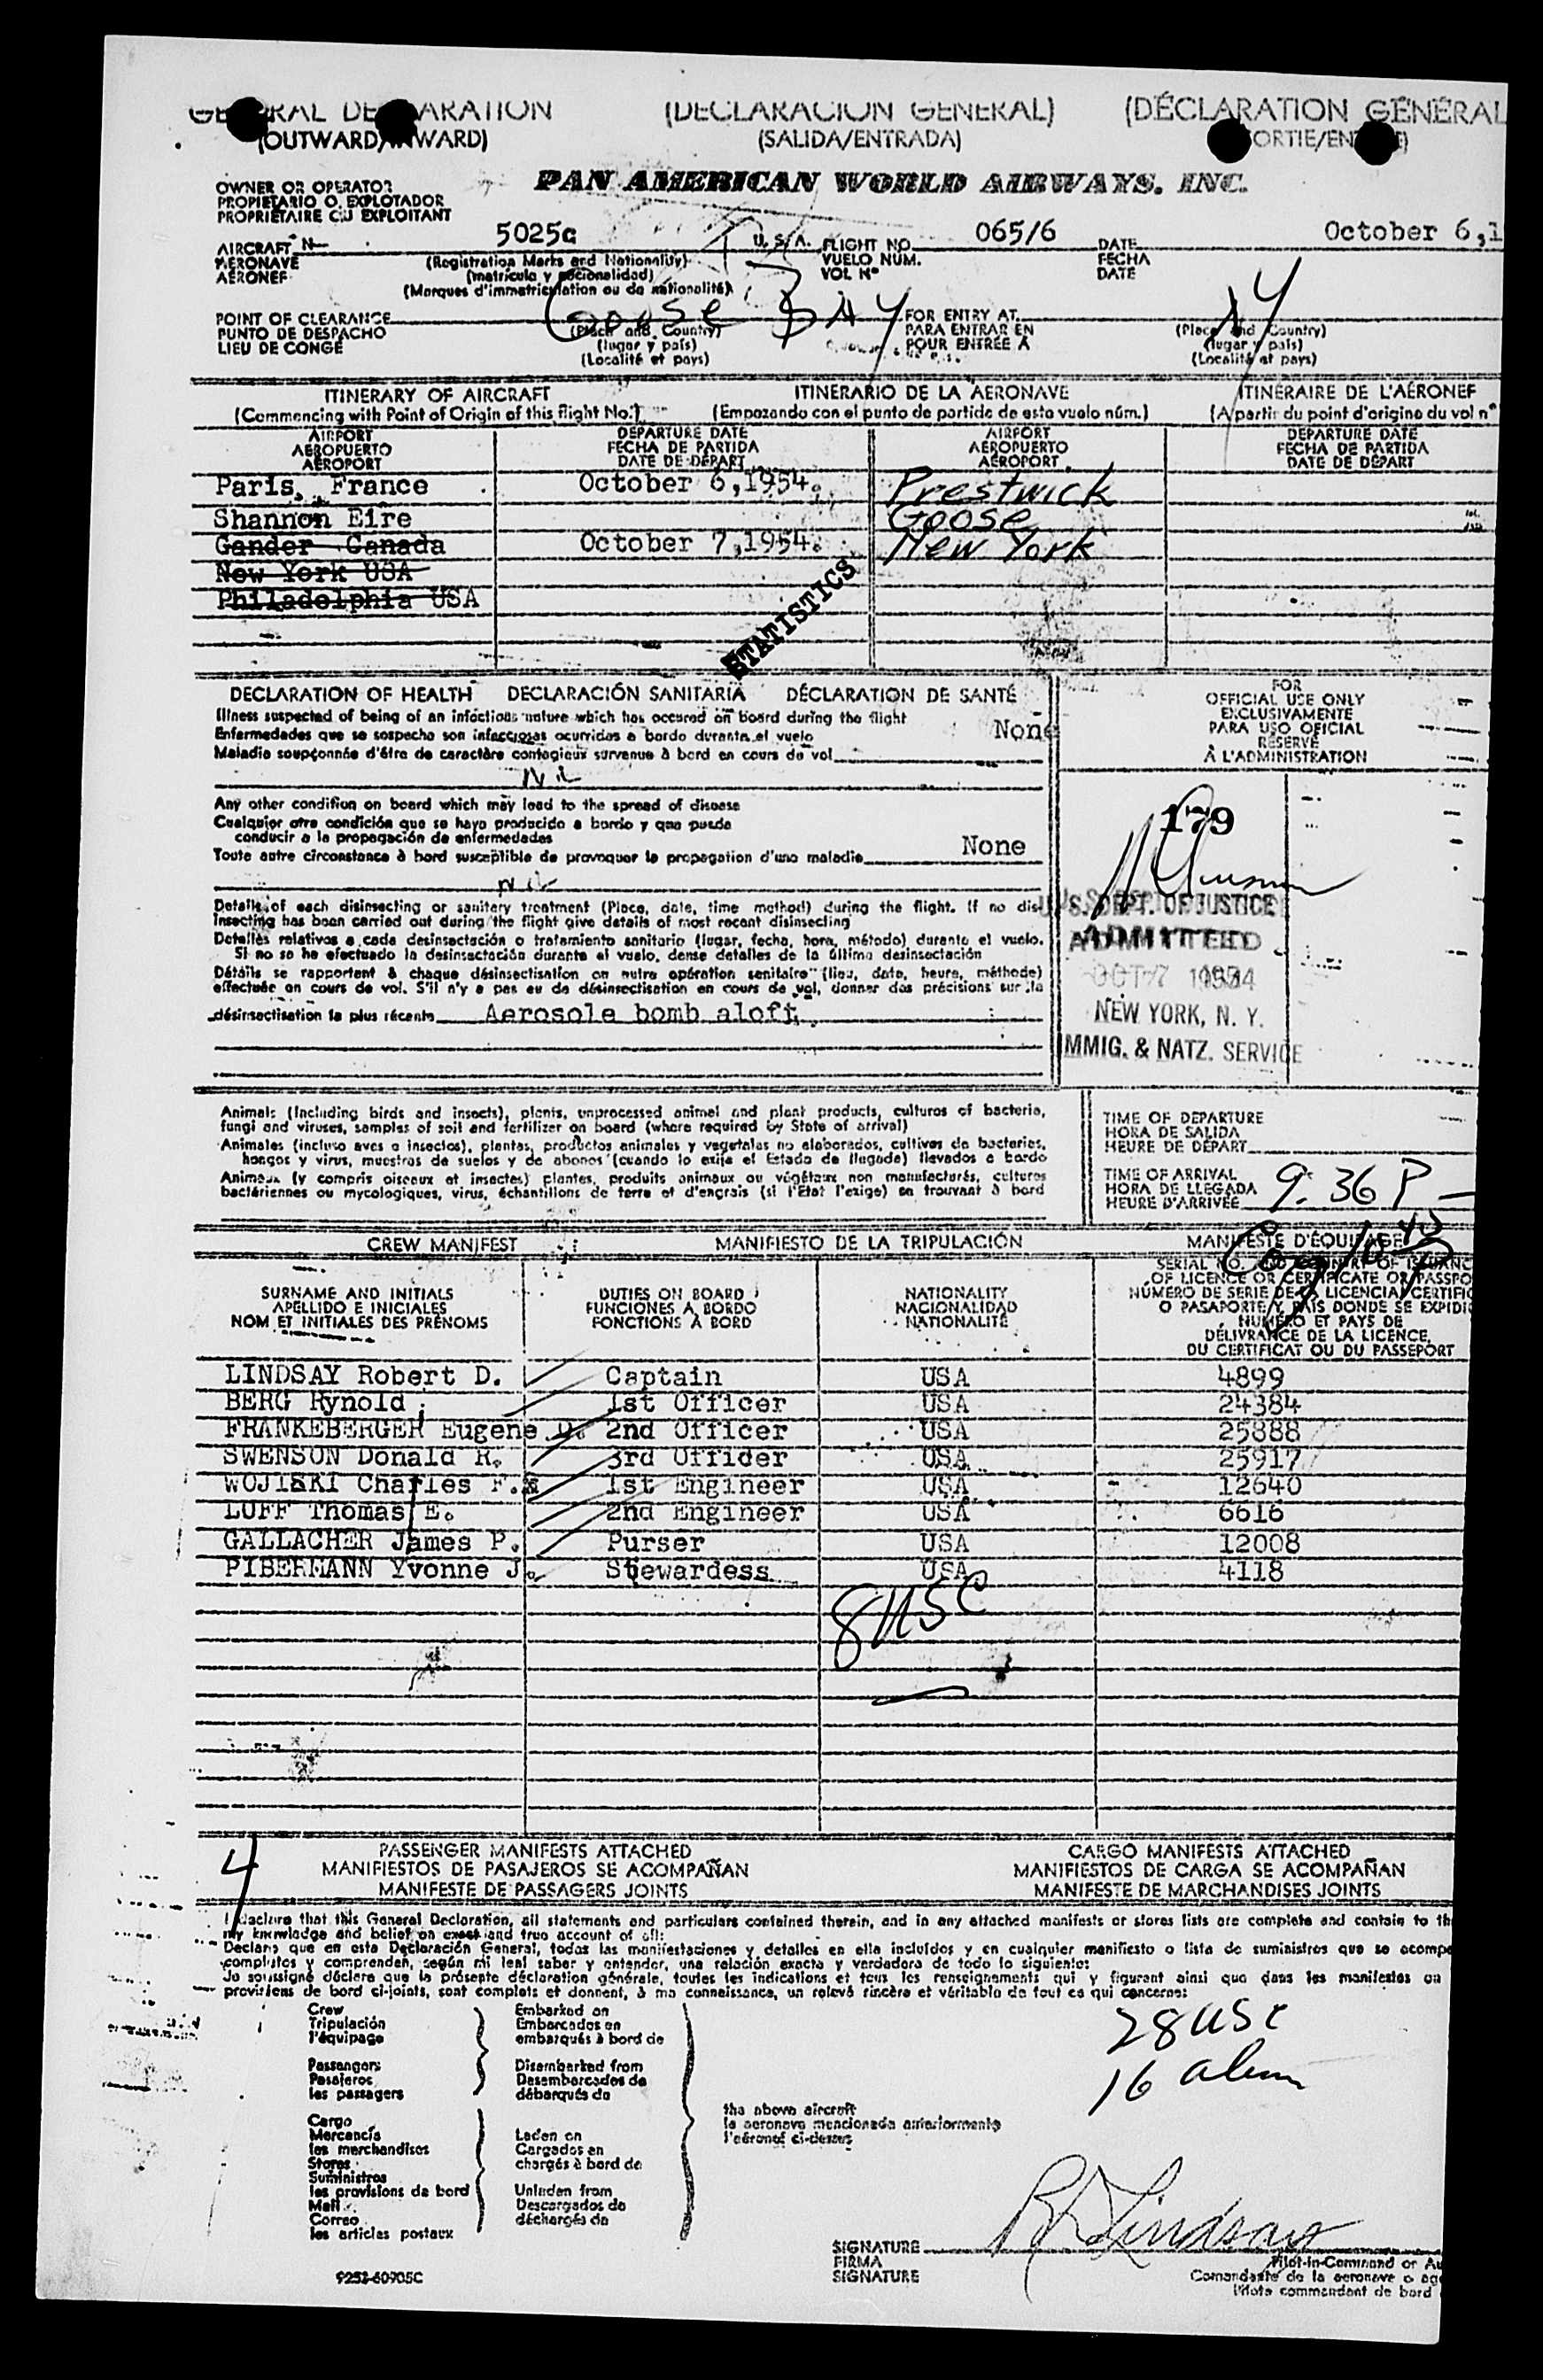 GENERAL DECLARATION (DECLARACION GENERAL) (DÉCLARATION GÉNÉRAL
(OUTWARD/INWARD) (SALIDA/ENTRADA)
OWNER OR OPERATOR
PROPIETARIO O EXPLOTADOR
PROPRIÉTAIRE OU EXPLOITANT
PAN AMERICAN WORLD AIRWAYS, INC.
AIRCRAFT N 5025 U.S.A. FLIGHT NO. 065/6 DATE October 6,1
AERONAVE (Registration Marks and Nationality) VUELO NUM. FECHA
AÉRONEF (matricula y nacionalidad) VOL Nº DATE
(Marques d'immatriculation ou de nationalité)
POINT OF CLEARANCE Goose Bay FOR ENTRY AT NY
PUNTO DE DESPACHO (Place and Country) PARA ENTRAR EN (Place and Country)
LIEU DE CONGÉ (lugar y pais) POUR ENTRÉE À (lugar y pais)
(Localité et pays) (Localité et pays)
ITINERARY OF AIRCRAFT ITINERARIO DE LA AERONAVE ITINÉRAIRE DE L'AÉRONEF
(Commencing with Point of Origin of this flight No.) (Empezando con el punto de partida de este vuelo núm.) (A partir du point d'origine du vol nº
AIRPORT DEPARTURE DATE AIRPORT DEPARTURE DATE
AEROPUERTO FECHA DE PARTIDA AEROPUERTO FECHA DE PARTIDA
AÉROPORT DATE DE DÉPART AÉROPORT DATE DE DÉPART
Paris, France October 6,1954. Prestwick
Shannon Eire Goose
Gander Canada October 7,1954. New York
New York USA
Philadelphia USA
STATISTICS
DECLARATION OF HEALTH DECLARACIÓN SANITARIA DÉCLARATION DE SANTÉ
Illness suspected of being of an infectious nature which has occured on board during the flight
Enfermedades que se sospecha son infecciosas ocurridas a bordo durante el vuelo None
Maladie soupçonnée d'être de caractère contagieux survenue à bord en cours de vol
Nil
Any other condition on board which may lead to the spread of disease
Cualquier otra condición que se haya producido a bordo y que pueda
conducir a la propagación de enfermedades
Toute autre circonstance à bord susceptible de provoquer la propagation d'une maladie None
Nil
Details of each disinsecting or sanitary treatment (Place, date, time method) during the flight. If no dis-
insecting has been carried out during the flight give details of most recent disinsecting
Detalles relativos a cada desinsectación o tratamiento sanitario (lugar, fecha, hora, método) durante el vuelo.
Si no se ha efectuado la desinsectación durante el vuelo, dense detalles de la última desinsectación
Détails se rapportant à chaque désinsectisation ou autre opération sanitaire (lieu, date, heure, méthode)
effectuée en cours de vol. S'il n'y a pas eu de désinsectisation en cours de vol, donner des précisions sur la
désinsectisation la plus récente Aerosole bomb aloft.
FOR
OFFICIAL USE ONLY
EXCLUSIVAMENTE
PARA USO OFICIAL
RESERVÉ
À L'ADMINISTRATION
179
U. S. DEPT. OF JUSTICE
ADMITTED
OCT 7 1954
NEW YORK, N. Y.
IMMIG. & NATZ. SERVICE
Animals (Including birds and insects), plants, unprocessed animal and plant products, cultures of bacteria,
fungi and viruses, samples of soil and fertilizer on board (where required by State of arrival)
Animales (incluso aves e insectos), plantas, productos animales y vegetales no elaborados, cultivos de bacterias,
hongos y virus, muestras de suelos y de abonos (cuando lo exija el Estado de llegada) llevados a bordo
Animaux (y compris oiseaux et insectes) plantes, produits animaux ou végétaux non manufacturés, cultures
bactériennes ou mycologiques, virus, échantillons de terre et d'engrais (si l'Etat l'exige) se trouvant à bord
TIME OF DEPARTURE
HORA DE SALIDA
HEURE DE DÉPART
TIME OF ARRIVAL
HORA DE LLEGADA 9:36 P
HEURE D'ARRIVÉE
CREW MANIFEST MANIFIESTO DE LA TRIPULACIÓN MANIFESTE D'ÉQUIPAGE
SURNAME AND INITIALS
APELLIDO E INICIALES
NOM ET INITIALES DES PRÉNOMS
DUTIES ON BOARD
FUNCIONES A BORDO
FONCTIONS À BORD
NATIONALITY
NACIONALIDAD
NATIONALITÉ
SERIAL NO. AND COUNTRY OF ISSUANC
OF LICENCE OR CERTIFICATE OR PASSPO
NÚMERO DE SERIE DE LA LICENCIA, CERTIFIC
O PASAPORTE Y PAIS DONDE SE EXPIDIÓ
NUMÉRO ET PAYS DE
DÉLIVRANCE DE LA LICENCE,
DU CERTIFICAT OU DU PASSEPORT
LINDSAY Robert D. Captain USA 4899
BERG Rynold 1st Officer USA 24384
FRANKEBERGER Eugene D. 2nd Officer USA 25888
SWENSON Donald R. 3rd Offider USA 25917
WOJTSKI Charles F. 1st Engineer USA 12640
LUFF Thomas E. 2nd Engineer USA 6616
GALLACHER James P. Purser USA 12008
PIBERMANN Yvonne J. Stewardess USA 4118
8 USC
4
PASSENGER MANIFESTS ATTACHED CARGO MANIFESTS ATTACHED
MANIFIESTOS DE PASAJEROS SE ACOMPAÑAN MANIFIESTOS DE CARGA SE ACOMPAÑAN
MANIFESTE DE PASSAGERS JOINTS MANIFESTE DE MARCHANDISES JOINTS
I declare that this General Declaration, all statements and particulars contained therein, and in any attached manifests or stores lists are complete and contain to th
my knowledge and belief an exact and true account of all:
Declaro que en esta Declaración General, todas las manifestaciones y detalles en ella incluídos y en cualquier manifiesto o lista de suministros que se acompa
completos y comprenden, según mi leal saber y entender, una relación exacta y verdadera de todo lo siguiente:
Je soussigné déclare que la présente déclaration générale, toutes les indications et tous les renseignements qui y figurent ainsi que dans les manifestes ou
provisions de bord ci-joints, sont complets et donnent, à ma connaissance, un relevé sincère et véritable de tout ce qui concerne:
Crew Embarked on
Tripulación Embarcados en
l'équipage embarqués à bord de
28 USC
Passengers Disembarked from
Pasajeros Desembarcados de
les passagers débarqués de
16 alien
Cargo
Mercancía
les marchandises
Stores
Suministros
les provisions de bord
Mail
Correo
les articles postaux
Laden on
Cargados en
chargés à bord de
Unladen from
Descargados de
déchargés de
the above aircraft
la aeronave mencionada anteriormente
l'aéronef ci-dessus
SIGNATURE R D Lindsay
FIRMA Pilot-in-Command or Au
SIGNATURE Comandante de la aeronave o age
Pilote commandant de bord
9253-60905C